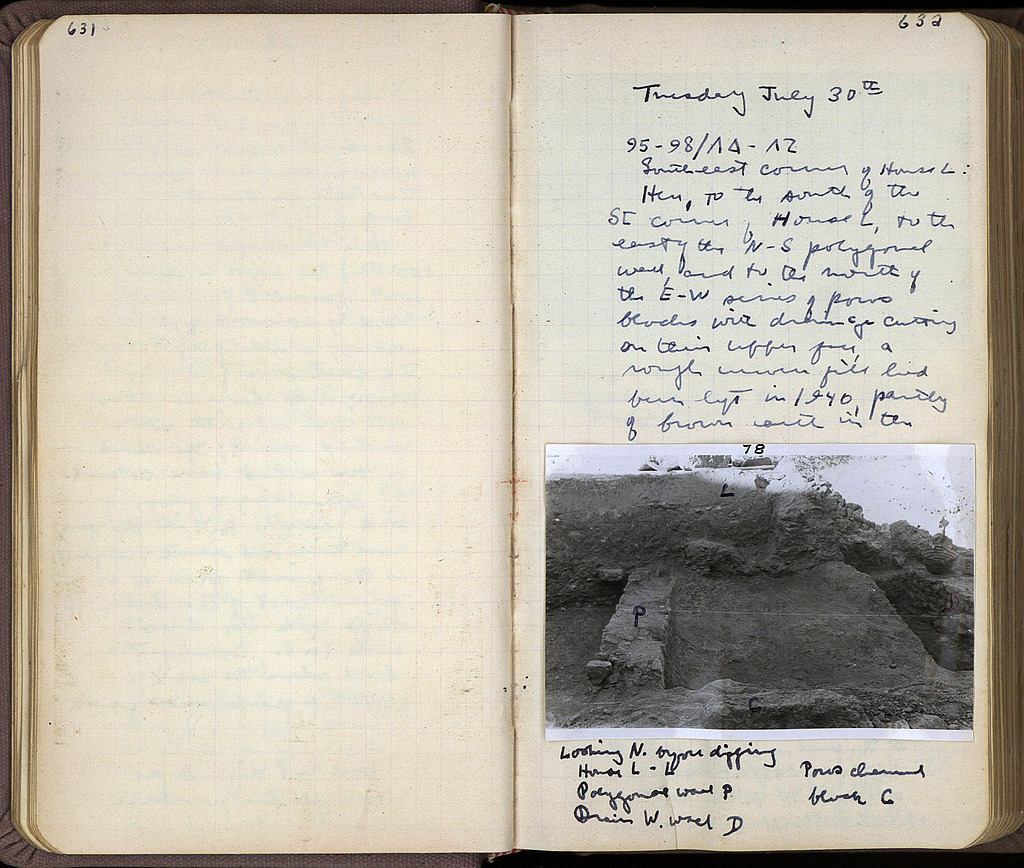 631
632
Tuesday July 30th
95-98/ΛΔ-ΛΖ
South-east corner of House L:
Here, to the south of the
SE corner of House L, to the
east of the N-S polygonal
wall, and to the north of
the E-W series of poros
blocks with drainage cutting
on their upper face, a
rough uneven fill had
been left in 1940, partly
of brown earth in the
78
L
P
D
C
Looking N. before digging
House L - L
Polygonal wall P
Drain W. wall D
Poros channel
block C